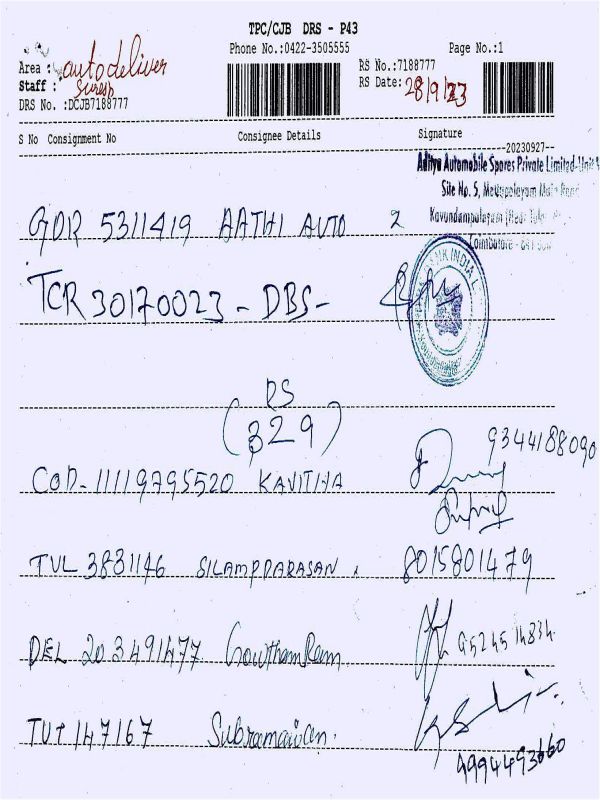 TPC/CJB DRS - P43
Phone No.:0422-3505555 Page No.:1
Area : autodeliver
Staff : Suresh
RS No.:7188777
RS Date: 28/9/23
DRS No. :DCJB7188777
S No Consignment No Consignee Details Signature
--20230927--
Aditya Automobile Spares Private Limited-Unit
Site No. 5, Mettupalayam Main Road
Kavundampalayam
Coimbatore - 641
GDR 5311419 AATHI AUTO 2
TCR 30170023 - DBS -
BANK INDIA L
RS
(329)
9344188090
COD - 11119795520 KAVITIYA
TUL 3831146 SILAMPDARASAN . 8015801479
DEL 203491477 GowthamRam 9524514834
TUT 147167 Subramaivan.
9994493660